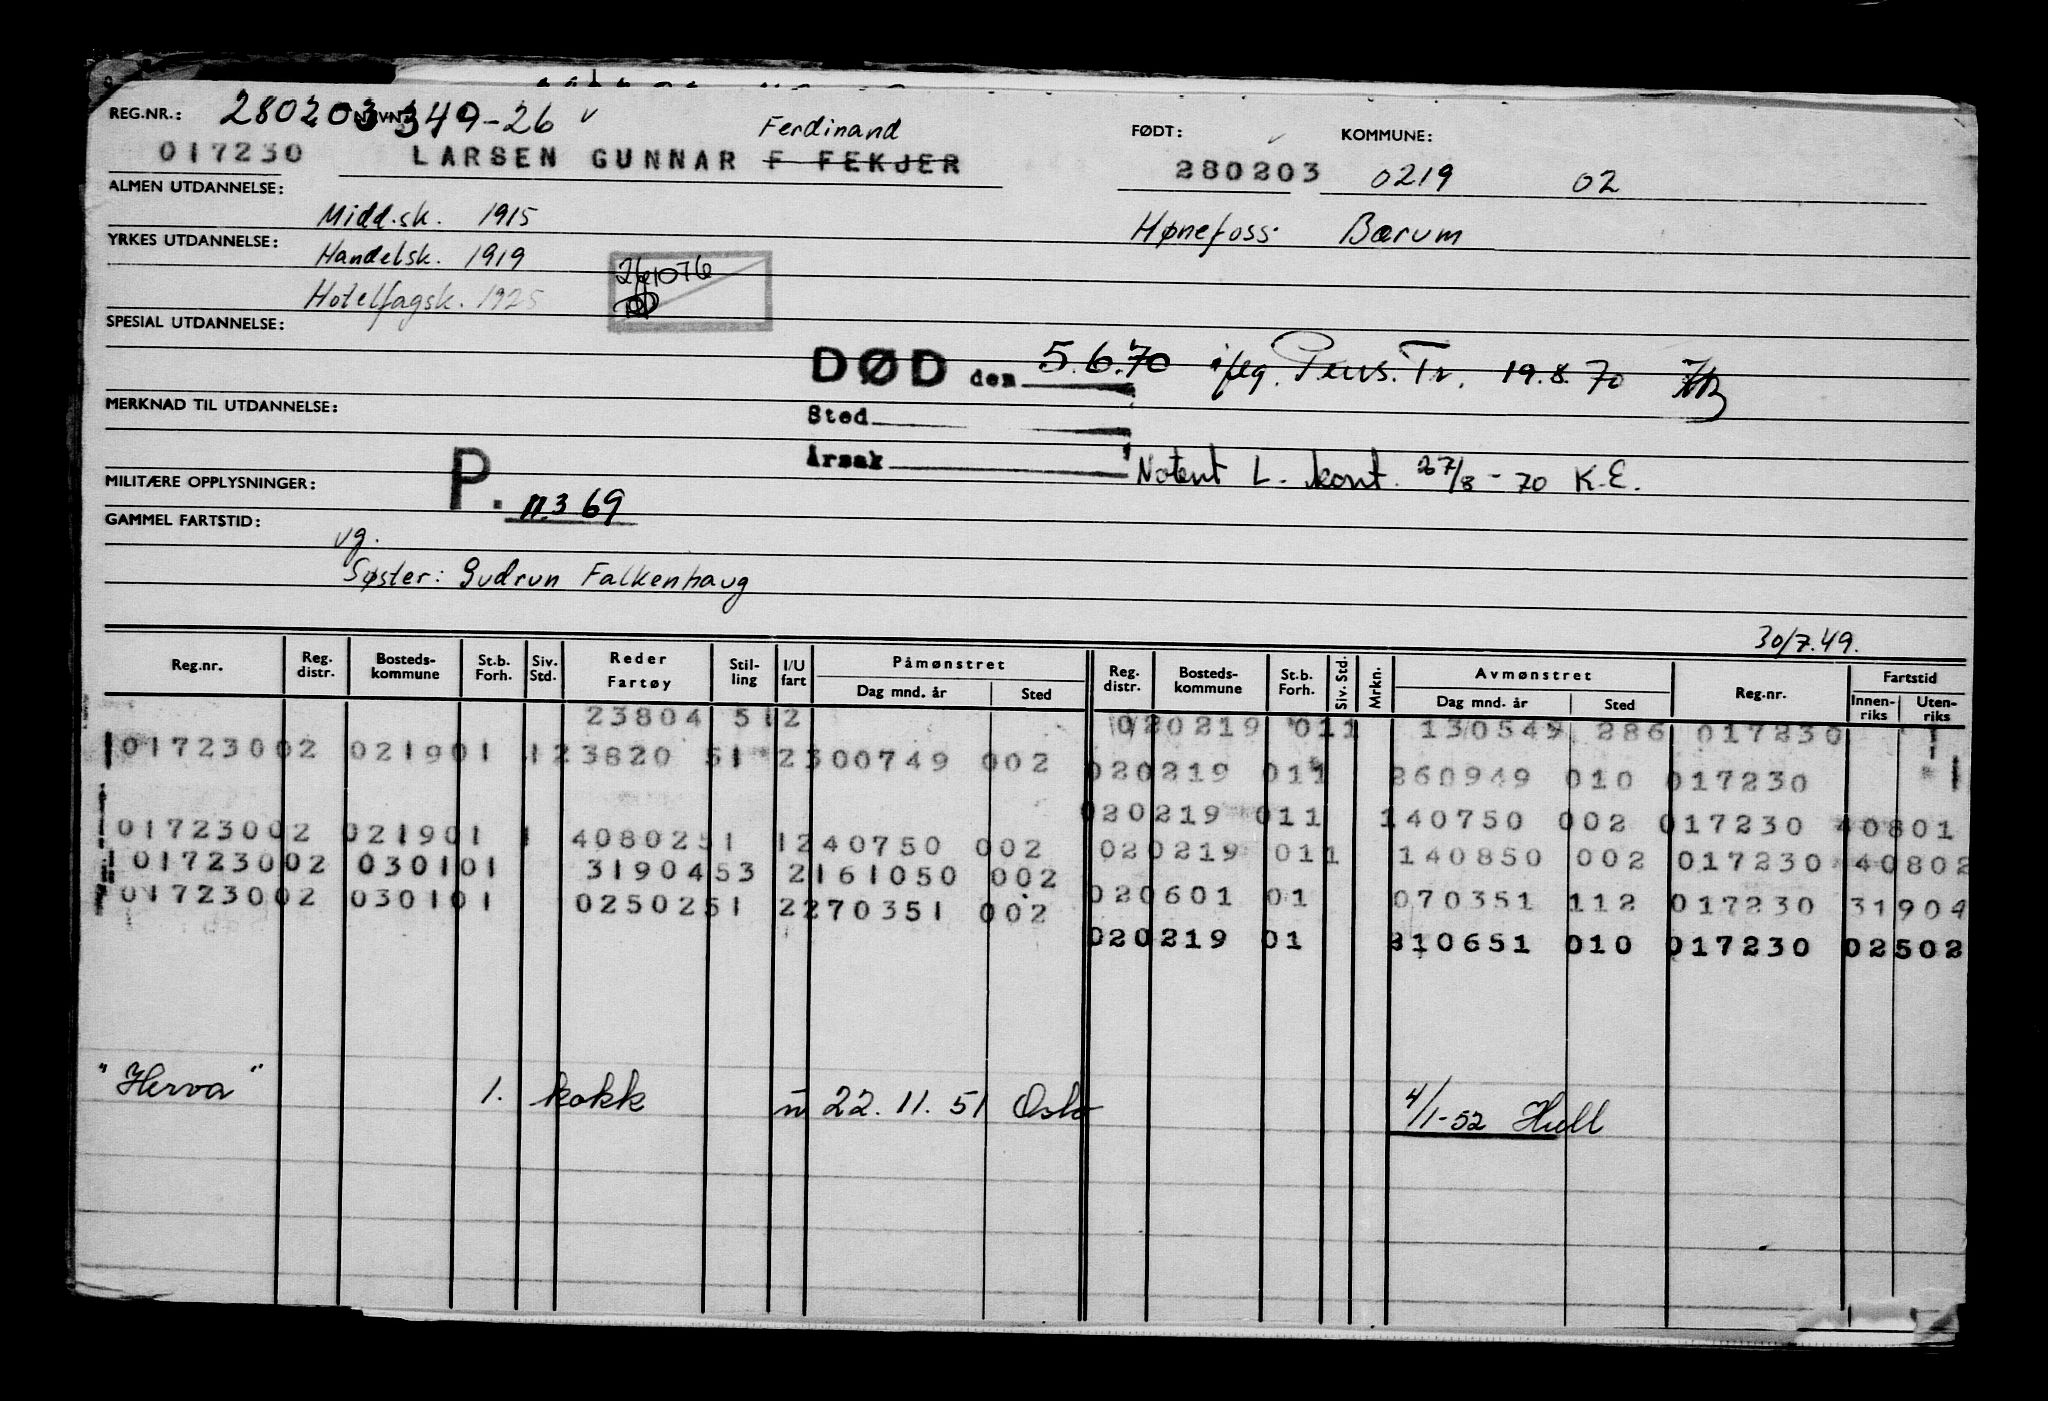 REG.NR.: 280203 349-26 v
NAVN:
Ferdinand
FØDT:
KOMMUNE:
017230 LARSEN GUNNAR F FEKJER 280203 0219 02
ALMEN UTDANNELSE:
Midd.sk. 1915 Hønefoss. Bærum
YRKES UTDANNELSE:
Handelsk. 1919
Hotelfagsk. 1925
261076
SPESIAL UTDANNELSE:
DØD den 5.6.70 iføg. Pens.Tr. 19.8.70
MERKNAD TIL UTDANNELSE:
Sted
Årsak
Notent L. kort. 27/8-70 K.E.
MILITÆRE OPPLYSNINGER:
P. 11.3 69
GAMMEL FARTSTID:
vg.
Søster: Gudrun Falkenhaug
30/7.49.
Reg.nr. Reg. distr. Bosteds-kommune St.b. Forh. Siv. Std. Reder Fartøy Stil-ling I/U fart Påmønstret Dag mnd. år Sted Reg. distr. Bosteds-kommune St.b. Forh. Siv. Std. Mrkn. Avmønstret Dag mnd. år Sted Reg.nr. Fartstid Innen-riks Uten-riks
23804 512 020219 011 130549 286 017230
01723002 021901 123820 51 2300749 002 020219 011 260949 010 017230
020219 011 140750 002 017230 40801
01723002 021901 1 4080251 1240750 002 020219 011 140850 002 017230 40802
01723002 030101 3190453 2161050 002 020601 01 070351 112 017230 31904
01723002 030101 0250251 2270351 002 020219 01 310651 010 017230 02502
"Herva" 1. kokk u 22.11.51 Oslo 4/1-52 Hull